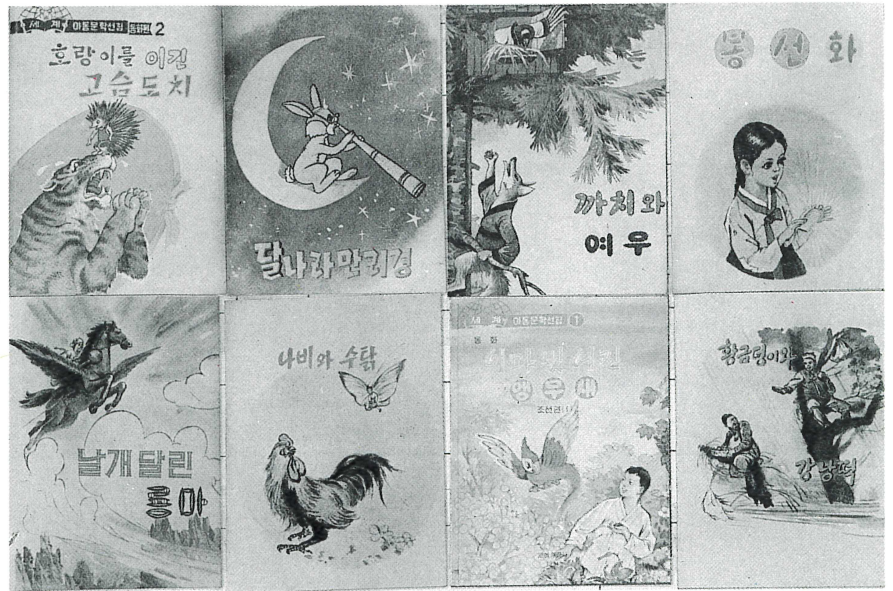 세계 아동문학선집 동화편 2
호랑이를 이긴
고슴도치
달나라만리경
까치와
여우
봉선화
날개달린
룡마
나비와 수탉
세계 아동문학선집 1
동화
앵무새
조선편(1)
황금덩이와
강낭떡